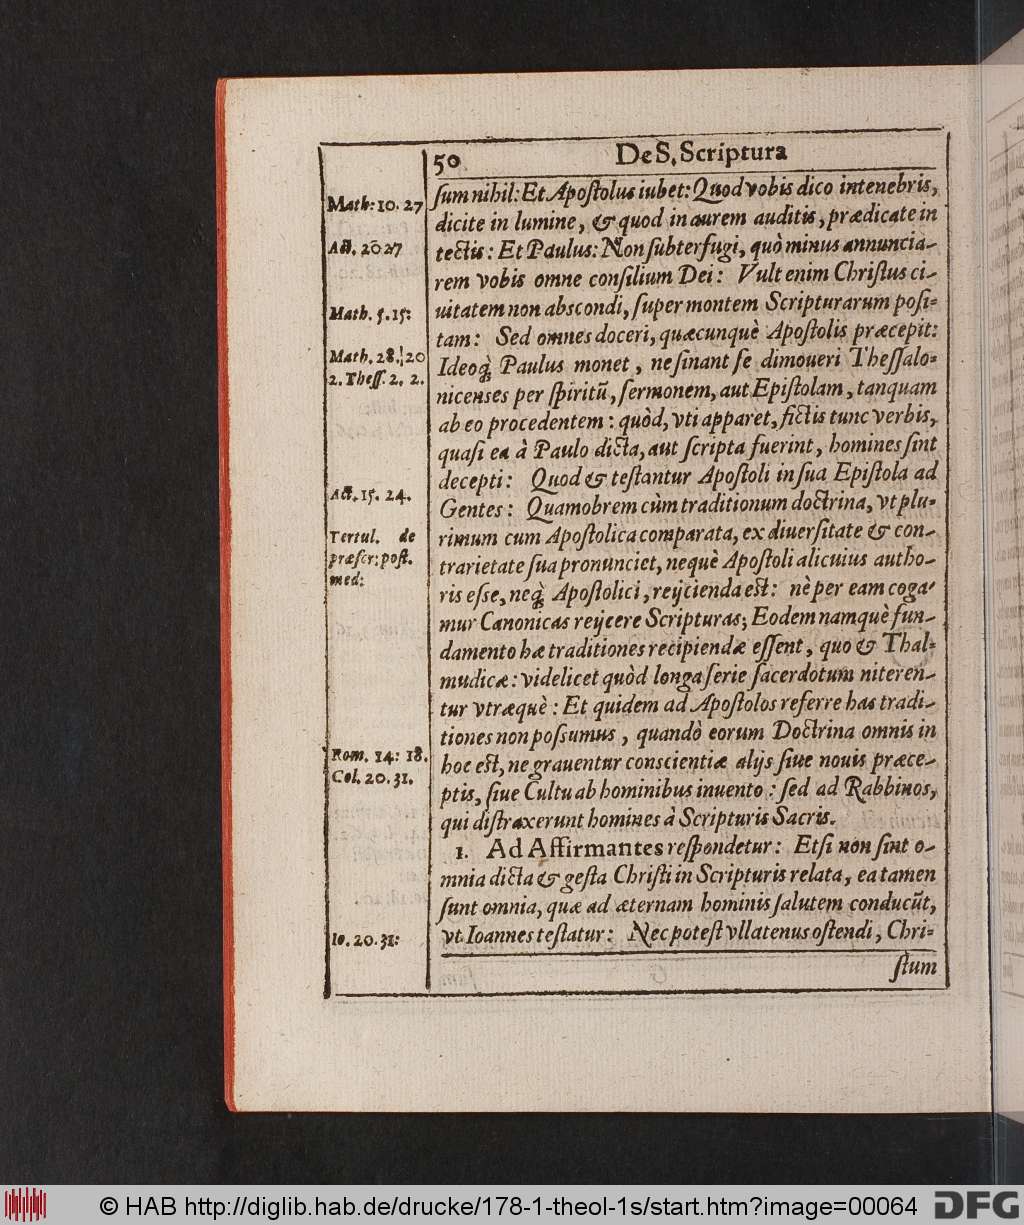 50 De S. Scriptura
Math: 10. 27
Act. 20 27
Math. 5. 15:
Math. 28. 20
2. Thess. 2. 2.
Act. 15. 24.
Tertul. de
præscr: post.
med:
Rom. 14: 18.
Col. 20. 31.
Io. 20. 31:
sum nihil: Et Apostolus iubet: Quod vobis dico in tenebris,
dicite in lumine, & quod in aurem auditis, prædicate in
tectis: Et Paulus: Non subterfugi, quò minus annuncia-
rem vobis omne consilium Dei: Vult enim Christus ci-
uitatem non abscondi, super montem Scripturarum posi-
tam: Sed omnes doceri, quæcunquè Apostolis præcepit:
Ideoq́; Paulus monet, ne sinant se dimoueri Thessalo-
nicenses per spiritũ, sermonem, aut Epistolam, tanquam
ab eo procedentem: quòd, vti apparet, fictis tunc verbis,
quasi ea à Paulo dicta, aut scripta fuerint, homines sint
decepti: Quod & testantur Apostoli in sua Epistola ad
Gentes: Quamobrem cùm traditionum doctrina, vt plu-
rimum cum Apostolica comparata, ex diuersitate & con-
trarietate sua pronunciet, nequè Apostoli alicuius autho-
ris esse, neq́; Apostolici, reijcienda est: nè per eam coga-
mur Canonicas reijcere Scripturas; Eodem namquè fun-
damento hæ traditiones recipiendæ essent, quo & Thal-
mudicæ: videlicet quòd longa serie sacerdotum niteren-
tur vtræquè: Et quidem ad Apostolos referre has tradi-
tiones non possumus, quandò eorum Doctrina omnis in
hoc est, ne grauentur conscientiæ alijs siue nouis præce-
ptis, siue Cultu ab hominibus inuento: sed ad Rabbinos,
qui distraxerunt homines à Scripturis Sacris.
1. Ad Affirmantes respondetur: Etsi non sint o-
mnia dicta & gesta Christi in Scripturis relata, ea tamen
sunt omnia, quæ ad æternam hominis salutem conducũt,
vt Ioannes testatur: Nec potest vllatenus ostendi, Chri-
stum
© HAB http://diglib.hab.de/drucke/178-1-theol-1s/start.htm?image=00064 DFG